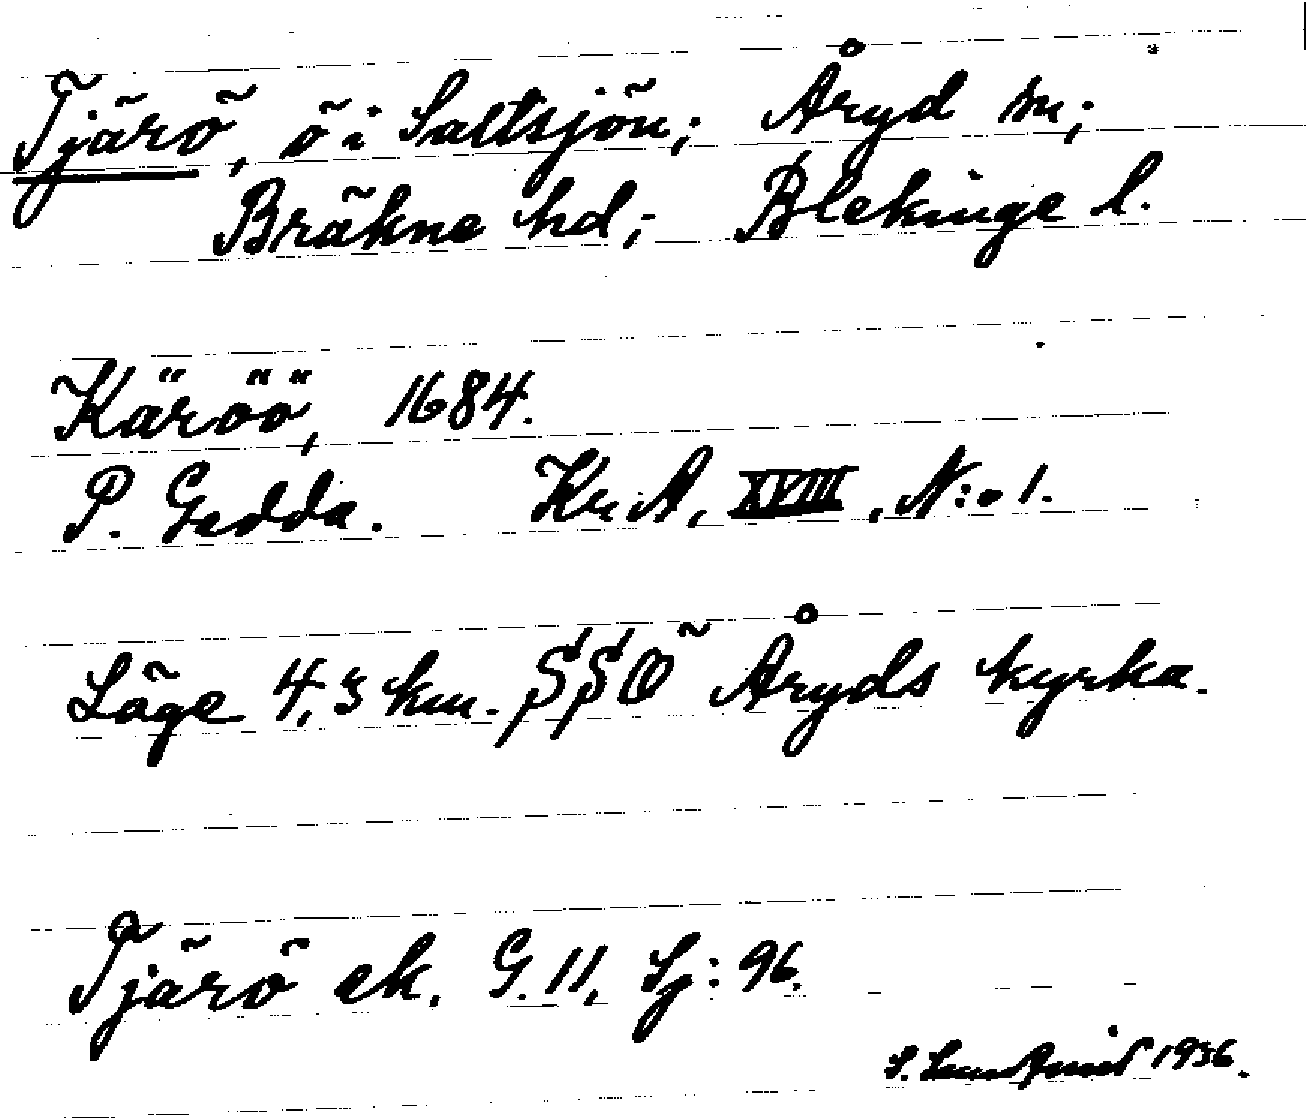 Tjärö, ö i Saltsjön; Åryd sn;
Bräkne hd; Blekinge l.
Käröö, 1684.
P. Gedda. Kr. A, XVIII, N:o 1.
Läge 4,5 km. SSO Åryds kyrka.
Tjärö ek. G. 11, Sj: 96.
S. 1936.